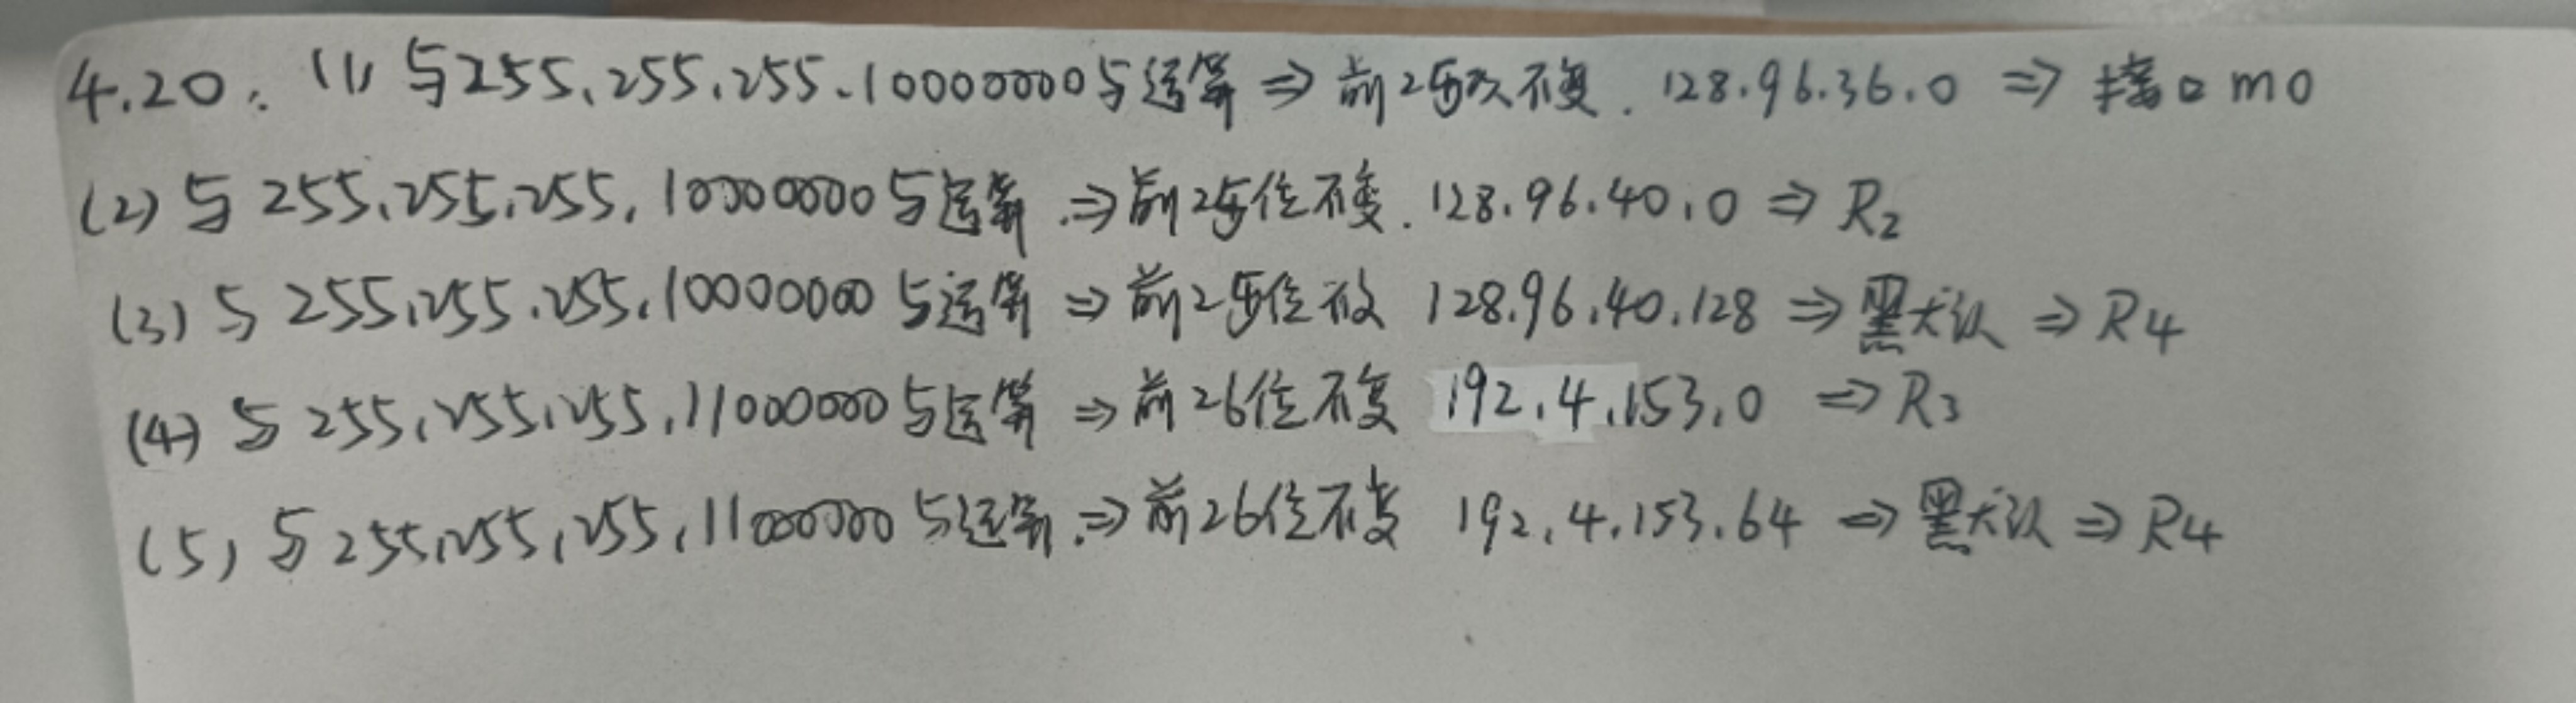 4.20: (1) 与255.255.255.10000000与运算 ⇒ 前25次不变. 128.96.36.0 ⇒ 接口 m0
(2) 与 255.255.255.10000000与运算 ⇒ 前25位不变. 128.96.40.0 ⇒ R2
(3) 与 255.255.255.10000000 与运算 ⇒ 前25位不变 128.96.40.128 ⇒ 默认 ⇒ R4
(4) 与 255.255.255.11000000与运算 ⇒ 前26位不变 192.4.153.0 ⇒ R3
(5) 与 255.255.255.11000000 与运算 ⇒ 前26位不变 192.4.153.64 ⇒ 默认 ⇒ R4